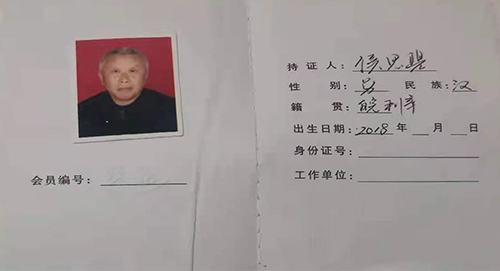 会员编号：
持证人：侯思
性别：男 民族：汉
籍贯：皖利辛
出生日期：2018年 月 日
身份证号：
工作单位：